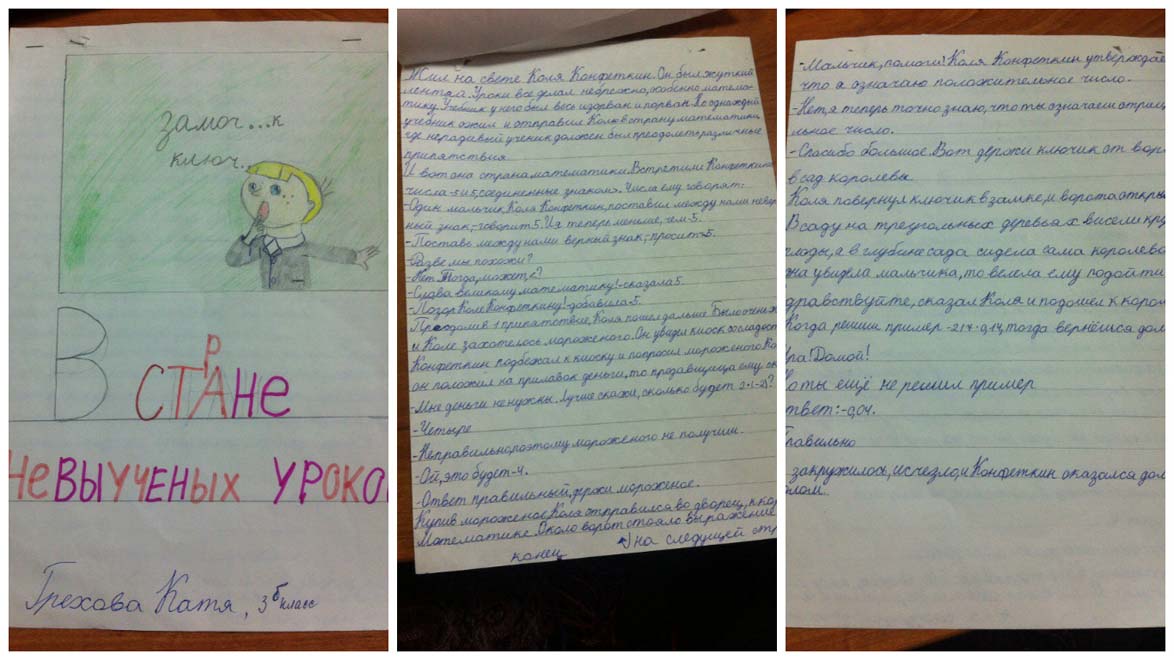 замоч...к
ключ...
В СТРАНЕ
НЕВЫУЧЕНЫХ УРОКО
Грехова Катя, 3 б класс
Жил на свете Коля Конфеткин. Он был жуткий
лентяй. Уроки все делал небрежно, особенно матема-
тику. Учебник у него был весь изорван и порван. Но однажды
учебник ожил и отправил Колю в страну математики,
где нерадивый ученик должен был преодолеть различные
припятствия.
И вот она страна математики. Встретили Конфеткина
числа -5 и 5, соединенные знаком. Числа ему говорят:
-Один мальчик, Коля Конфеткин, поставил между нами невер-
ный знак,-говорит 5. И я теперь меньше, чем -5.
-Поставь между нами верный знак,-просит -5.
-Разве мы похожи?
-Нет. Тогда, может,?
-Слава великому математику!-сказала 5.
-Позор Коле Конфеткину!-добавила -5.
Преодолив 1 припятствие, Коля пошел дальше. Было очень
и Коле захотелось мороженого. Он увидел киоск со сладост
Конфеткин подбежал к киоску и попросил мороженого. Ко
он положил на прилавок деньги, то продавщица ему
-Мне деньги не нужны. Лучше скажи, сколько будет 2·(-2)?
-Четыре
-Неправильно, поэтому мороженого не получиш.
-Ой, это будет -4.
-Ответ правильный, держи мороженое.
Купив мороженое Коля отправился во дворец, к кор
Математике. Около ворот стояло выражение
на следущей стр
конец
-Мальчик, помоги! Коля Конфеткин утверждае
что я означаю положительное число.
-Нет, я теперь точно знаю, что ты означаеш отриц
льное число.
-Спасибо большое. Вот держи ключик от вор
в сад королевы.
Коля повернул ключик в замке, и ворота откры
В саду на треугольных деревьях висели кру
плоды, а в глубине сада сидела сама королев
на увидела мальчика, то велела ему подойти
здравствуйте, сказал Коля и подошел к корол
Когда решиш пример тогда вернёшся дом
ра! Домой!
о ты ещё не решил пример
твет: -0,04.
равильно
закружилось, исчезло, и Конфеткин оказался дом
олом.